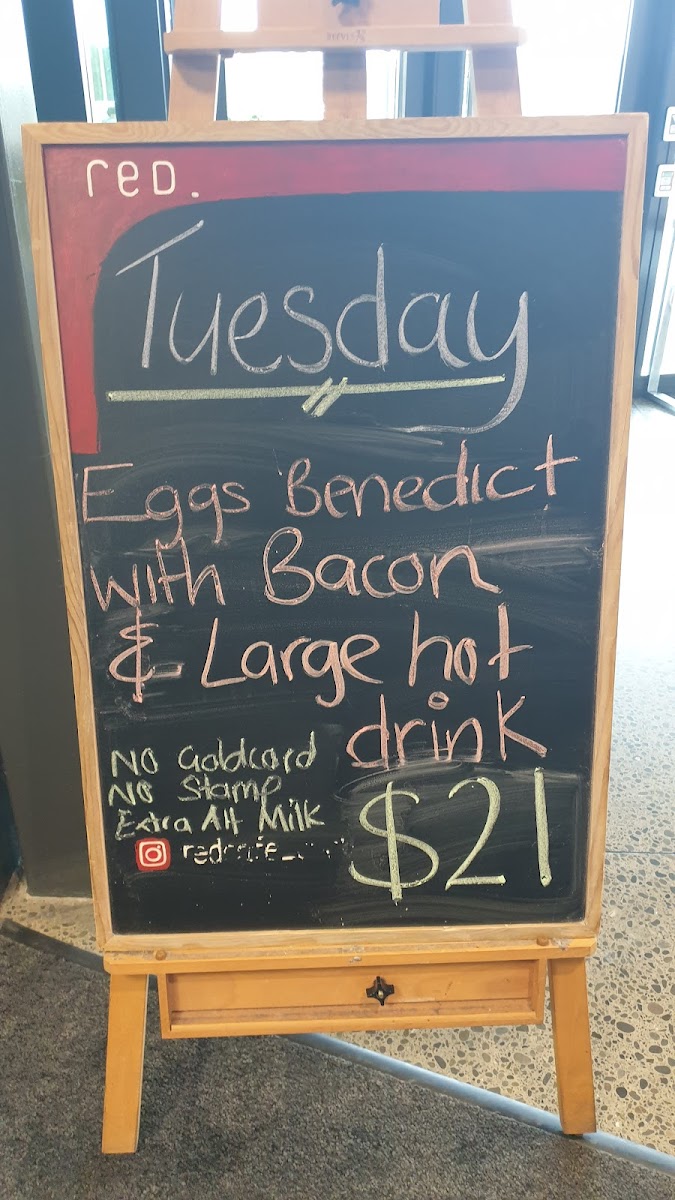 red.
Tuesday
Eggs Benedict
with Bacon
& Large hot
drink
No Goldcard
No Stamp
Extra Alt Milk
$21